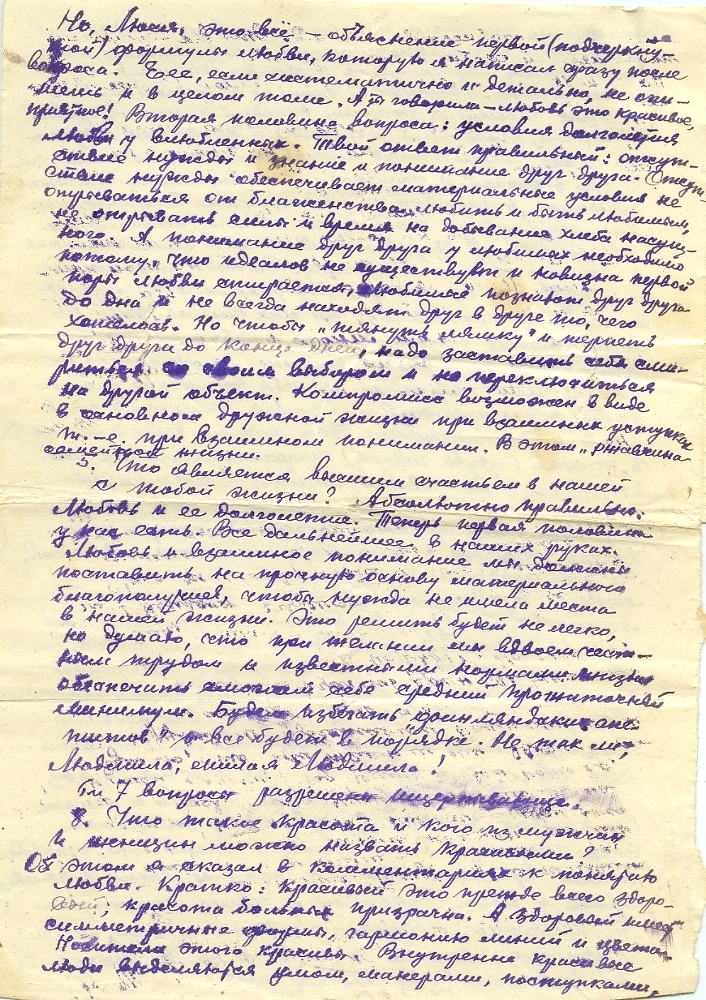 Но, Люся, это всё – объяснение первой (подчеркну-
той) формулы любви, которую я написал сразу после
вопроса. Ее, если систематично и детально, не опи-
шешь и в целом томе. А ты говорила – любовь это красивое,
приятное! Вторая половина вопроса: условия долголетия
любви у влюбленных. Твой ответ правильный: отсут-
ствие нужды и знание и понимание друг друга. Отсут-
ствие нужды обеспечивает материальные условия не
отрываться от блаженства любить и быть любимым,
не отрывать силы и время на добывание хлеба насущ-
ного. А понимание друг друга у любимых необходимо
потому, что идеалов не существует и новизна первой
поры любви стирается, любимые познают друг друга
до дна и не всегда находят друг в друге то, чего
хотелось. Но чтобы „тянуть лямку" и терпеть
друг друга до конца дней, надо заставить себя сми-
риться со своим выбором и не переключиться
на другой объект. Компромисс возможен в виде
в основном дружной жизни при взаимных уступках
т.-е. при взаимном понимании. В этом „ржавчина
семейной жизни.
5. Что является высшим счастьем в нашей
с тобой жизни? Абсолютно правильно.
Любовь и ее долголетие. Теперь первая половина
у нас есть. Все дальнейшее в наших руках.
Любовь и взаимное понимание мы должны
поставить на прочную основу материального
благополучия, чтобы нужда не имела места
в нашей жизни. Это решить будет не легко,
но думаю, что при желании мы вдвоем чест-
ным трудом и известными нормами жизни
обеспечить сможем себе средний прожиточный
минимум. Будем избегать аппе-
титов" и все будет в порядке. Не так ли,
Людмила, милая Людмила!
6 и 7 вопросы разрешены
8. Что такое красота и кого из мужчин
и женщин можно назвать красивыми?
Об этом я сказал в комментариях к понятию
любви. Кратко: красивый это прежде всего здоро-
вый, красота больных призрачна. А здоровый имеет
симметричные формы, гармонию линий и цвета.
Носители этого красивы. Внутренне красивые
люди выделяются умом, манерами, поступками.